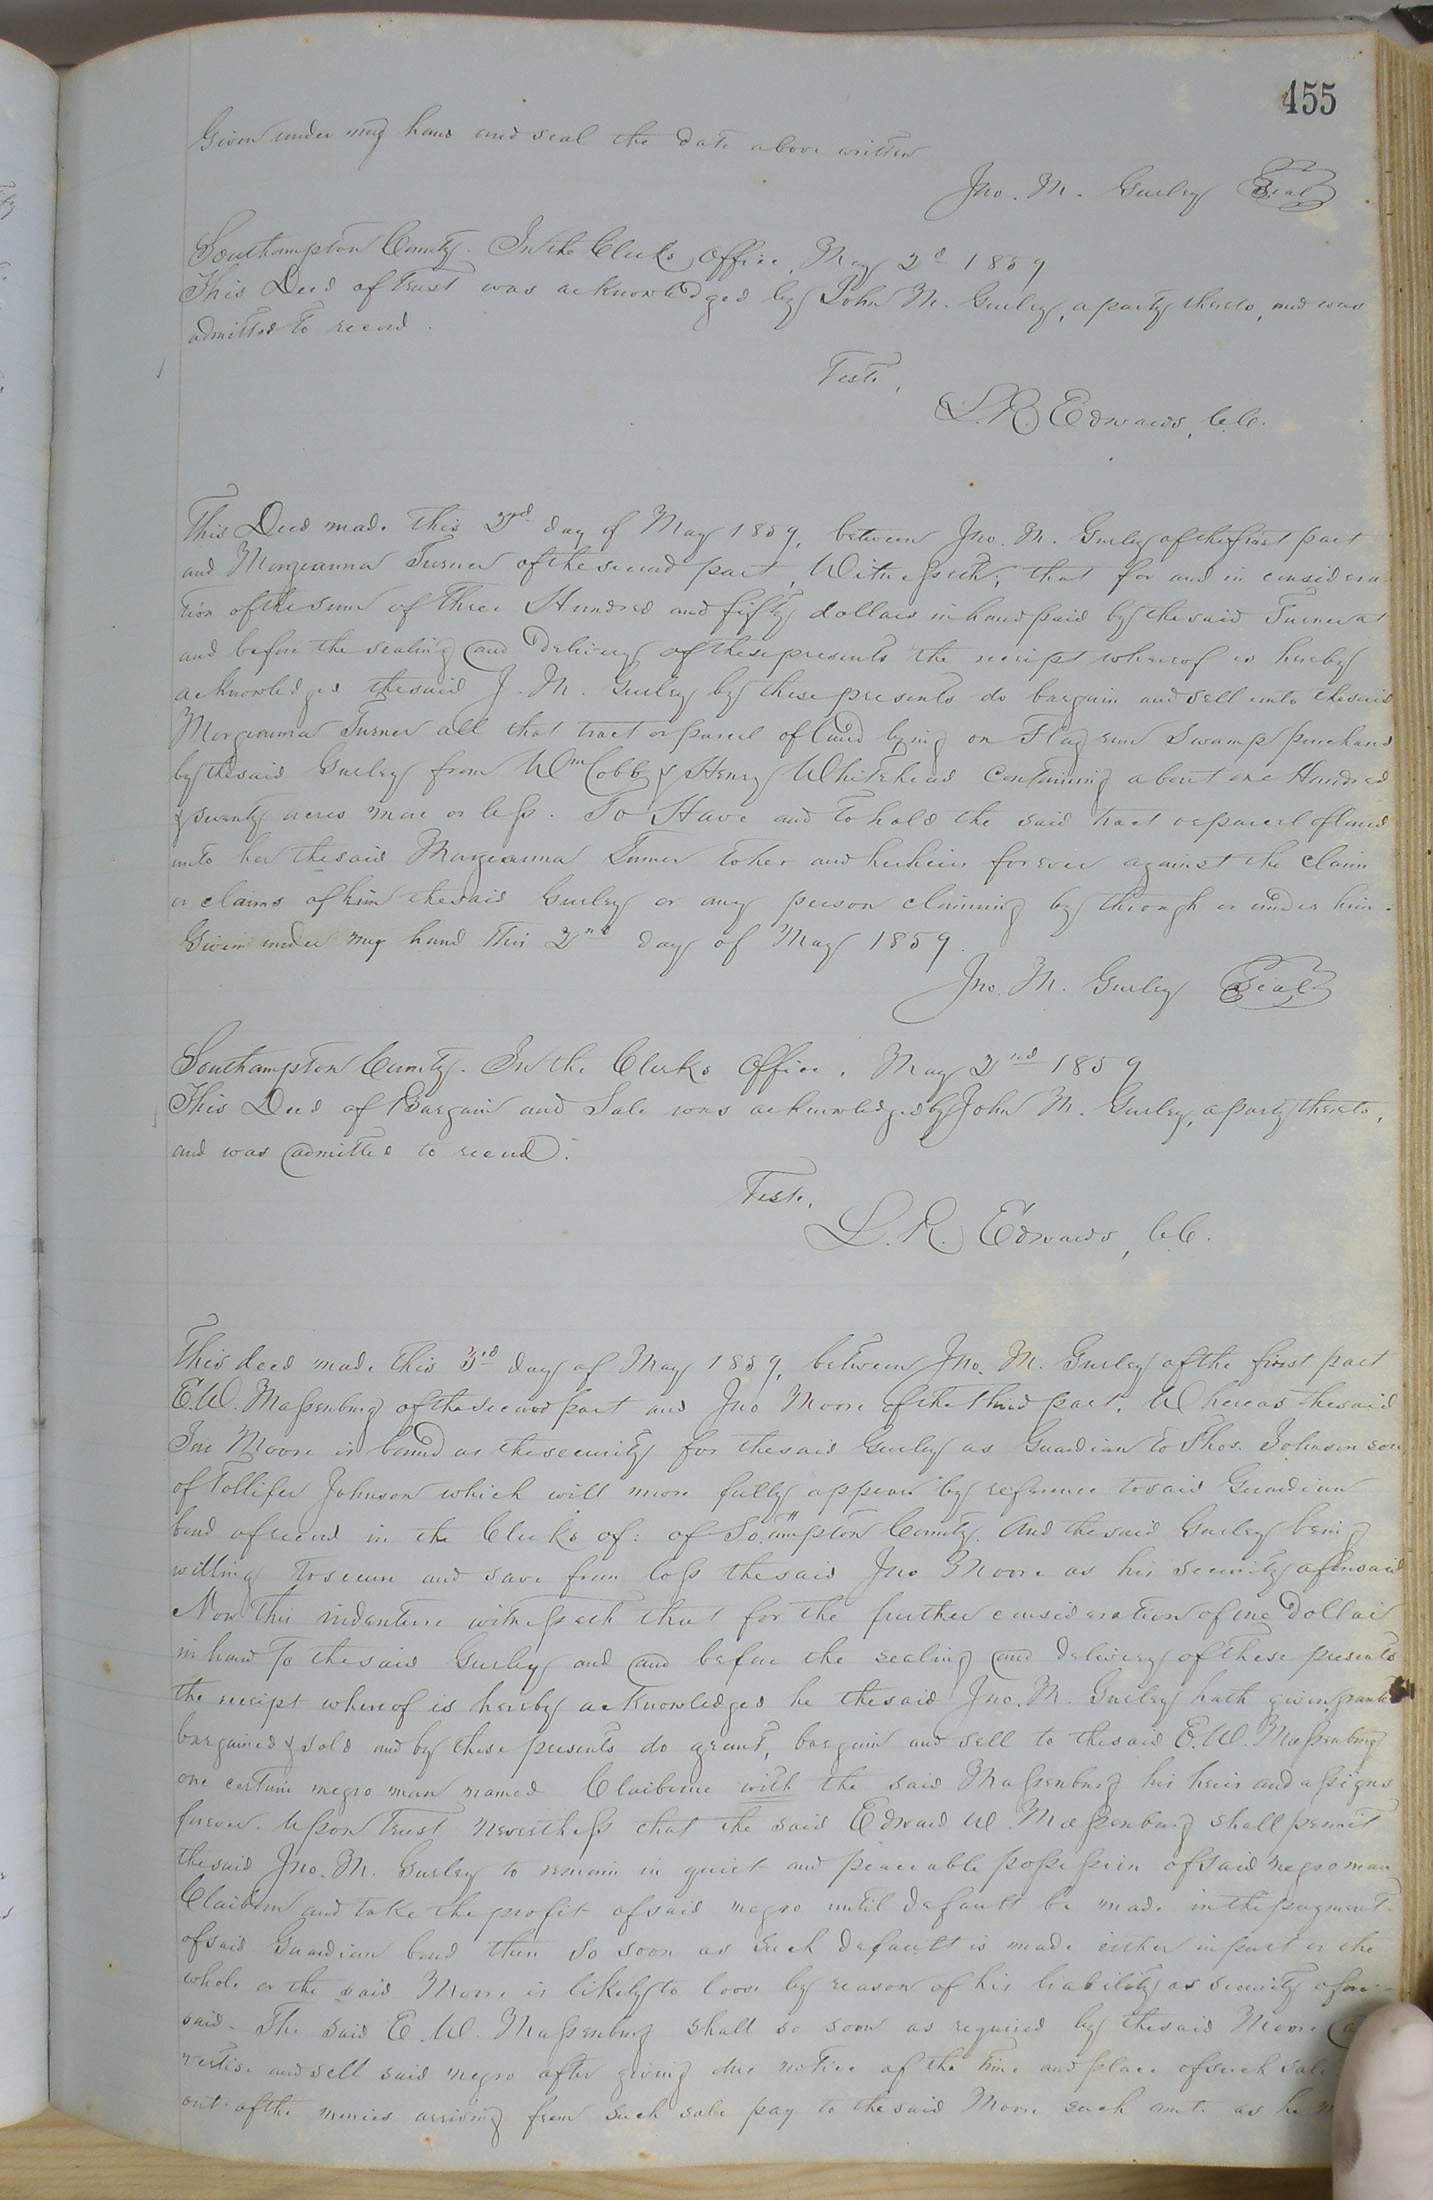 455
Given under my hand and seal the date above written
Jno. M. Gurley Seal
Southampton County. In the Clerks Office, May 2d 1859
This Deed of Trust was acknowledged by John M. Gurley, a party thereto, and was
admitted to record.
Teste,
L. R. Edwards, C.C.
This Deed made this 2nd day of May 1859, between Jno. M. Gurley of the first part
and Margeanna Turner of the second part, Witnesseth, that for and in considera-
tion of the sum of Three Hundred and fifty dollars in hand paid by the said Turner at
and before the sealing and delivery of these presents the receipt whereof is hereby
acknowledged the said J. M. Gurley by these presents do bargain and sell unto the said
Margeanna Turner all that tract or parcel of land lying on Flag run Swamp purchased
by the said Gurley from Wm Cobb & Henry Whitehead containing about one Hundred
& seventy acres more or less. To Have and to hold the said tract or parcel of land
unto her the said Margeanna Turner to her and her heirs forever against the claim
or claims of him the said Gurley or any person claiming by through or under him.
Given under my hand this 2nd day of May 1859.
Jno. M. Gurley Seal
Southampton County. In the Clerks Office, May 2nd 1859
This Deed of Bargain and Sale was acknowledged by John M. Gurley, a party thereto,
and was admitted to record.
Teste,
L. R. Edwards, C.C.
This deed made this 3rd day of May 1859, between Jno. M. Gurley of the first part
E. W. Massenburg of the second part and Jno Moore of the third part. Whereas the said
Jno Moore is bound as the security for the said Gurley as Guardian to Thos. Johnson son
of Tollifer Johnson which will more fully appear by reference to said Guardian
bond of record in the Clerks of: of So.ampton County. And the said Gurley being
willing to secure and save from loss the said Jno Moore as his security aforesaid
Now this indenture witnesseth that for the further consideration of one Dollar
in hand to the said Gurley and and before the sealing and delivery of these presents
the receipt whereof is hereby acknowledged he the said Jno. M. Gurley hath given, granted
bargained & sold and by these presents do grant, bargain and sell to the said E. W. Massenburg
one certain negro man named Claiborne with the said Massenburg his heirs and assigns
forever. Upon Trust nevertheless that the said Edward W. Massenburg shall permit
the said Jno. M. Gurley to remain in quiet and peaceable possession of said negro man
Claiborn and take the profit of said negro until default be made in the payment
of said Guardian bond then So soon as such default is made either in part or the
whole or the said Moore is likely to loose by reason of his liability as security afore-
said. The said E. W. Massenburg shall so soon as required by the said Moore
vertise and sell said negro after giving due notice of the time and place of such sale
out of the monies arriving from such sale pay to the said Moore such amt. as he